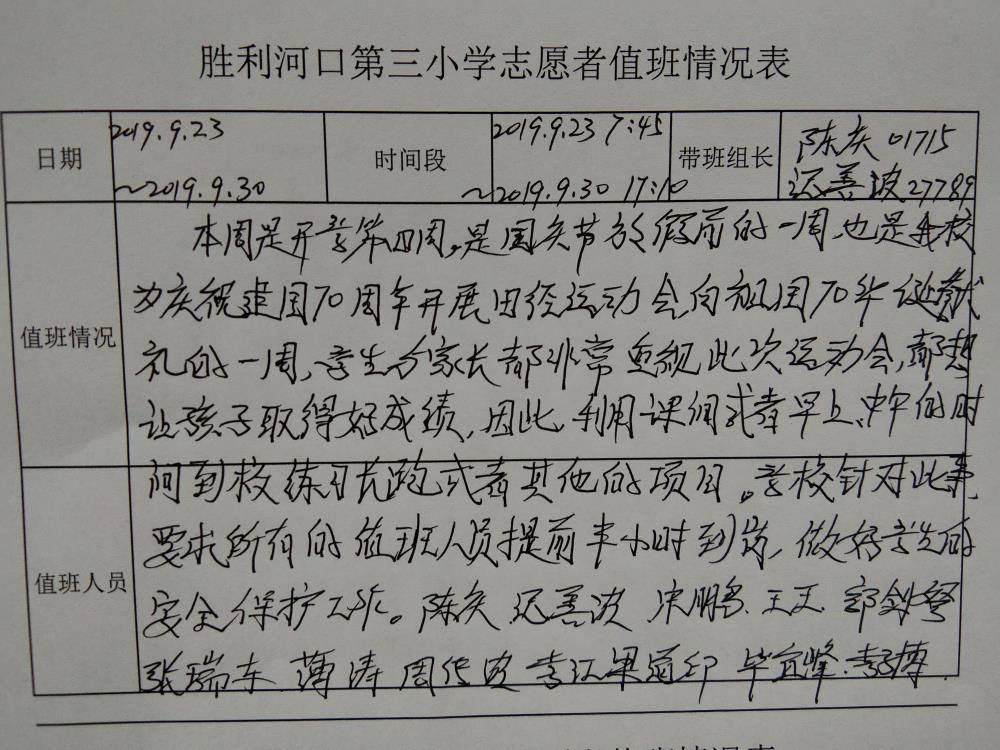 胜利河口第三小学志愿者值班情况表
日期 2019.9.23 ~2019.9.30 时间段 2019.9.23 7:45 ~2019.9.30 17:10 带班组长 陈庆 01715 迟善波 27789
值班情况
本周是开学第四周,是国庆节放假前的一周,也是我校
为庆祝建国70周年开展田径运动会,向祖国70华诞献
礼的一周,学生与家长都非常重视此次运动会,都想
让孩子取得好成绩,因此,利用课间或者早上、中午的时
间到校练习长跑或者其他的项目。学校针对此事
要求所有的值班人员提前半小时到岗,做好学生的
值班人员
安全保护工作。陈庆 迟善波 宋鹏 王 郭剑
张瑞东 薄涛 周 波 李江 梁道印 毕宜峰 李 博